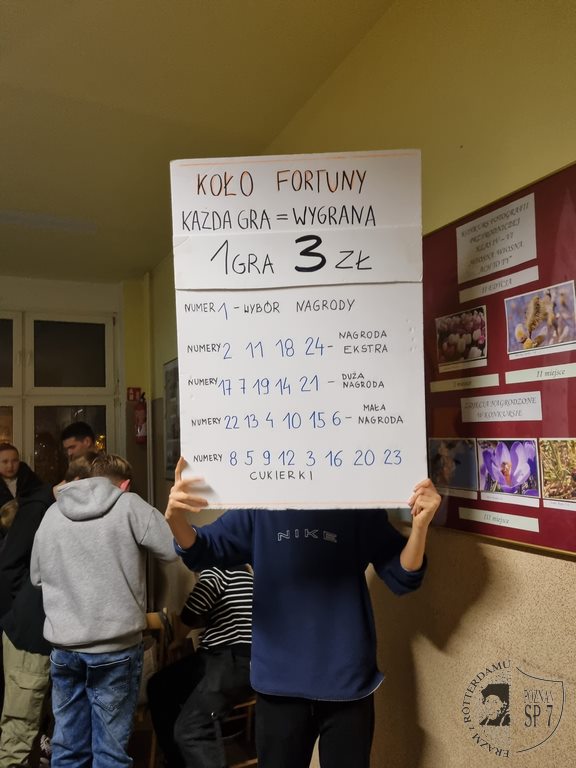 KOŁO FORTUNY
KAŻDA GRA = WYGRANA
1 GRA 3 ZŁ
NUMER 1 - WYBÓR NAGRODY
NUMERY 2 11 18 24 - NAGRODA EKSTRA
NUMERY 17 7 19 14 21 - DUŻA NAGRODA
NUMERY 22 13 4 10 15 6 - MAŁA NAGRODA
NUMERY 8 5 9 12 3 16 20 23
CUKIERKI
NIKE
KONKURS FOTOGRAFII
PRZYRODNICZEJ
KLAS IV - VI
"WIOSNA WIOSNA
ACH TO TY"
II EDYCJA
I miejsce
II miejsce
ZDJĘCIA NAGRODZONE
W KONKURSIE
III miejsce
ERAZM z ROTTERDAMU
POZNAŃ
SP 7